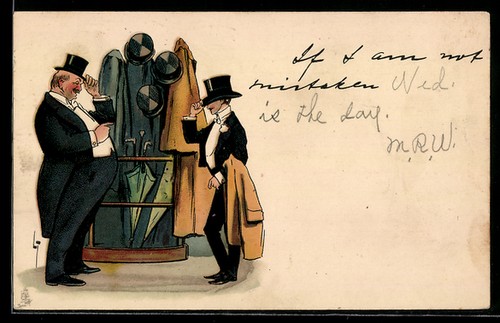 If I am not
mistaken Wed.
is the day.
M.R.W.